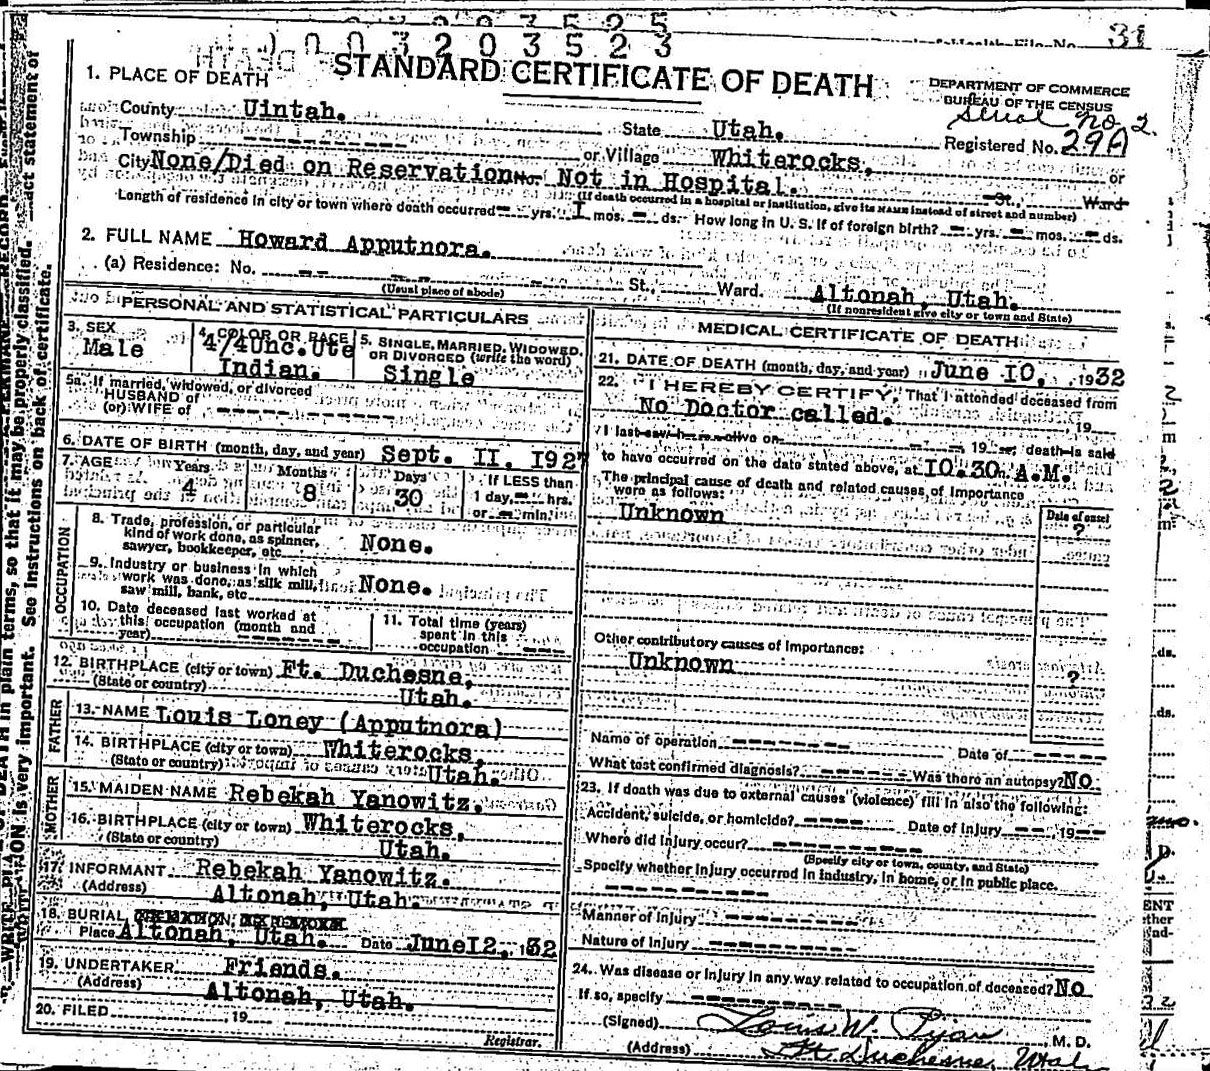 31
0 0 3 2 0 3 5 2 3
STANDARD CERTIFICATE OF DEATH
DEPARTMENT OF COMMERCE
BUREAU OF THE CENSUS
Serial No 2.
1. PLACE OF DEATH
County Uintah. State Utah. Registered No. 29A
Township ---------- or Village Whiterocks, or
City None/Died on Reservation No. Not in Hospital. St., Ward
(If death occurred in a hospital or institution, give its NAME instead of street and number)
Length of residence in city or town where death occurred - yrs. 1 mos. - ds. How long in U. S. if of foreign birth? - yrs. - mos. - ds.
2. FULL NAME Howard Apputnora.
(a) Residence: No. -- -- St., Ward. Altonah, Utah.
(Usual place of abode) (If nonresident give city or town and State)
PERSONAL AND STATISTICAL PARTICULARS
3. SEX
Male
4. COLOR OR RACE
4/4 Unc. Ute
Indian.
5. SINGLE, MARRIED, WIDOWED,
OR DIVORCED (write the word)
Single
5a. If married, widowed, or divorced
HUSBAND of
(or) WIFE of ----------
6. DATE OF BIRTH (month, day, and year) Sept. II. I927
7. AGE Years Months Days If LESS than
4 8 30 1 day, -- hrs.
or -- min.
OCCUPATION
8. Trade, profession, or particular
kind of work done, as spinner,
sawyer, bookkeeper, etc. None.
9. Industry or business in which
work was done, as silk mill,
saw mill, bank, etc. None.
10. Date deceased last worked at
this occupation (month and
year) --------
11. Total time (years)
spent in this
occupation ---
12. BIRTHPLACE (city or town) Ft. Duchesne,
(State or country) Utah.
FATHER
13. NAME Louis Loney (Apputnora)
14. BIRTHPLACE (city or town) Whiterocks,
(State or country) Utah.
MOTHER
15. MAIDEN NAME Rebekah Yanowitz.
16. BIRTHPLACE (city or town) Whiterocks,
(State or country) Utah.
17. INFORMANT Rebekah Yanowitz.
(Address) Altonah, Utah.
18. BURIAL,
Place Altonah, Utah. Date June I2, 1932
19. UNDERTAKER Friends.
(Address) Altonah, Utah.
20. FILED , 19
Registrar.
MEDICAL CERTIFICATE OF DEATH
21. DATE OF DEATH (month, day, and year) June I0, 1932
22. I HEREBY CERTIFY, That I attended deceased from
No Doctor called. 19
I last saw h alive on 19 ; death is said
to have occurred on the date stated above, at I0.30 A.M.
The principal cause of death and related causes of importance
were as follows:
Date of onset
Unknown ?
Other contributory causes of importance:
Unknown ?
Name of operation -------- Date of -----
What test confirmed diagnosis? ------ Was there an autopsy? NO
23. If death was due to external causes (violence) fill in also the following:
Accident, suicide, or homicide? ---- Date of injury -- , 19 --
Where did injury occur? --------
(Specify city or town, county, and State)
Specify whether injury occurred in industry, in home, or in public place.
----------
Manner of injury --------
Nature of injury ---------
24. Was disease or injury in any way related to occupation of deceased? NO
If so, specify ---------
(Signed) Louis W. M. D.
(Address) Ft. Duchesne, Utah